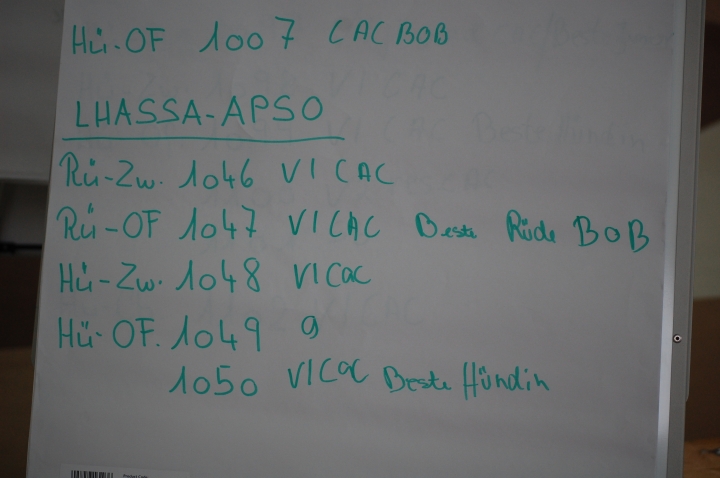 Hü-OF 1007 CACBOB
LHASSA-APSO
Rü-Zw. 1046 V1 CAC
Rü-OF 1047 V1CAC Beste Rüde BOB
Hü-Zw. 1048 V1Cac
Hü-OF. 1049 g
1050 V1Cac Beste Hündin